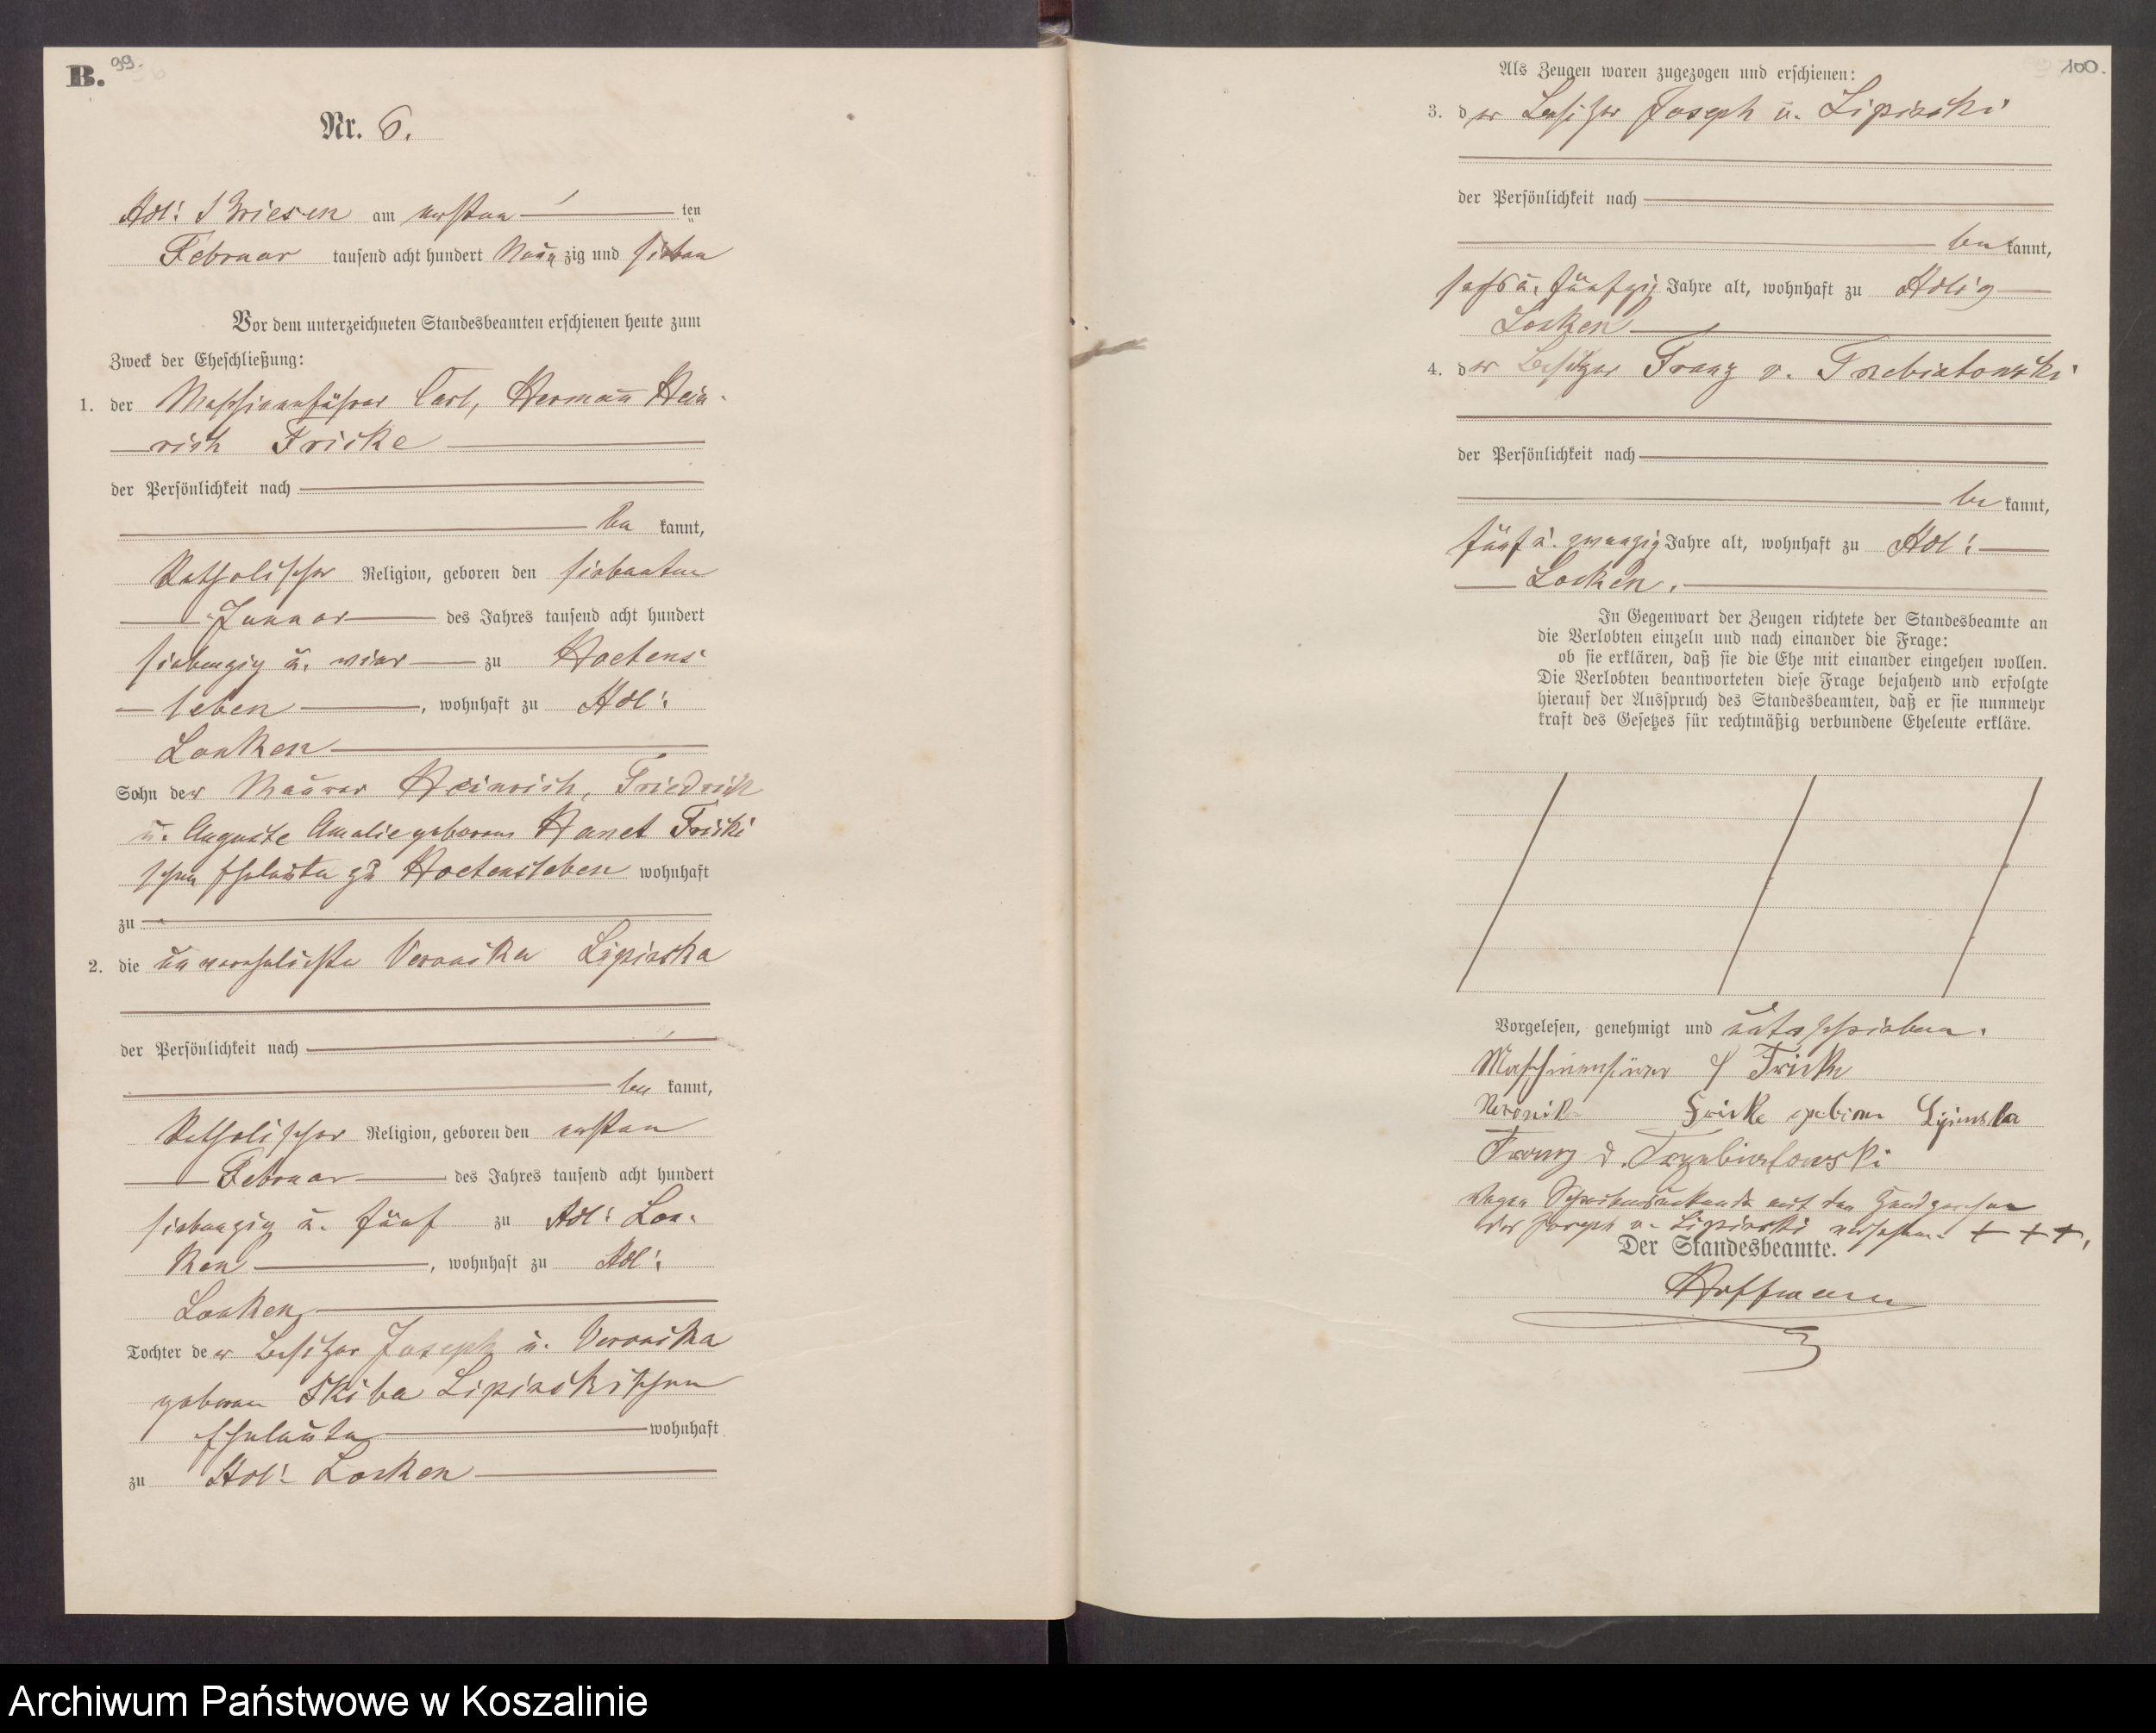 B.
99.
Nr. 6.
Adl: Briesen am ersten ten
Februar tausend acht hundert Neun zig und sieben
Vor dem unterzeichneten Standesbeamten erschienen heute zum
Zweck der Eheschließung:
1. der Maschienenführer Carl, Hermann Hein-
rich Fricke
der Persönlichkeit nach
be kannt,
Katholischer Religion, geboren den siebenten
Januar des Jahres tausend acht hundert
siebenzig u. vier zu Hoetens-
leben, wohnhaft zu Adl:
Lonken
Sohn der Maurer Heinrich, Friedrich
u. Auguste Amalie geborene Hanet Fricke
schen Eheleute zu Hoetensleben wohnhaft
zu
2. die unverehelichte Veronika Lipinska
der Persönlichkeit nach
be kannt,
Katholischer Religion, geboren den ersten
Februar des Jahres tausend acht hundert
siebenzig u. fünf zu Adl: Lon-
ken, wohnhaft zu Adl:
Lonken
Tochter der Besitzer Joseph u. Veronika
geborene Skiba Lipinskischen
Eheleute wohnhaft
zu Adl: Lonken
100.
Als Zeugen waren zugezogen und erschienen:
3. der Besitzer Joseph v. Lipinski
der Persönlichkeit nach
be kannt,
sechs u. fünfzig Jahre alt, wohnhaft zu Adlig
Lonken
4. der Besitzer Franz v. Trzebiatowski
der Persönlichkeit nach
be kannt,
fünf u. zwanzig Jahre alt, wohnhaft zu Adl:
Lonken.
In Gegenwart der Zeugen richtete der Standesbeamte an
die Verlobten einzeln und nach einander die Frage:
ob sie erklären, daß sie die Ehe mit einander eingehen wollen.
Die Verlobten beantworteten diese Frage bejahend und erfolgte
hierauf der Ausspruch des Standesbeamten, daß er sie nunmehr
kraft des Gesetzes für rechtmäßig verbundene Eheleute erkläre.
Vorgelesen, genehmigt und unterschrieben.
Fricke
Veronika Fricke geborene Lipinska
Franz v. Trzebiatowski
Wegen Schreibensunkunde mit den Handzeichen
des Joseph v. Lipinski versehen. + + +.
Der Standesbeamte.
Hoffmann
Archiwum Państwowe w Koszalinie